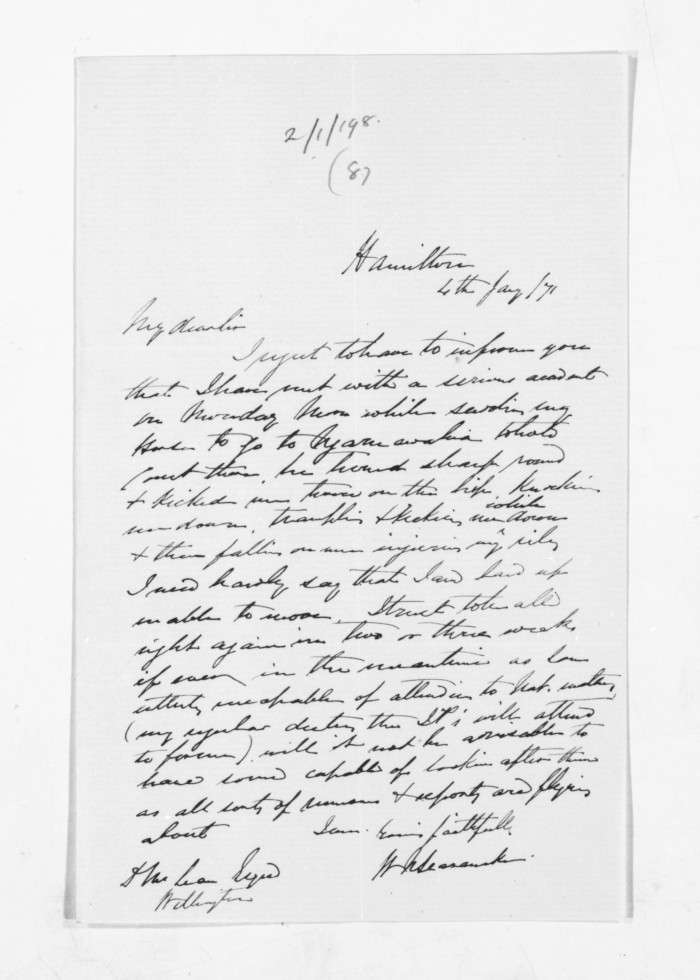 2/1/198.
(87
Hamilton
4th Jany/71
My dear Sir
I regret to have to inform you
that I have met with a serious accident
on Monday Noon while sending my
Horse to go to Ngaruawahia to hold
Court there, he turned sharp round
& Kicked me twice on the hip, Knocking
me down, trampling & Kicking me while down
& then falling on me injuring my ribs
I need hardly say that I am laid up
unable to move. I trust to be all
right again in two or three weeks
if ever, in the meantime as I am
utterly incapable of attending to Nat. matters,
(my regular duties the JP's will attend
to for me) will it not be advisable to
have some capable of looking after them
as all sorts of rumours & reports are flying
about
I am Yours faithfully,
D McLean Esqre
Wellington